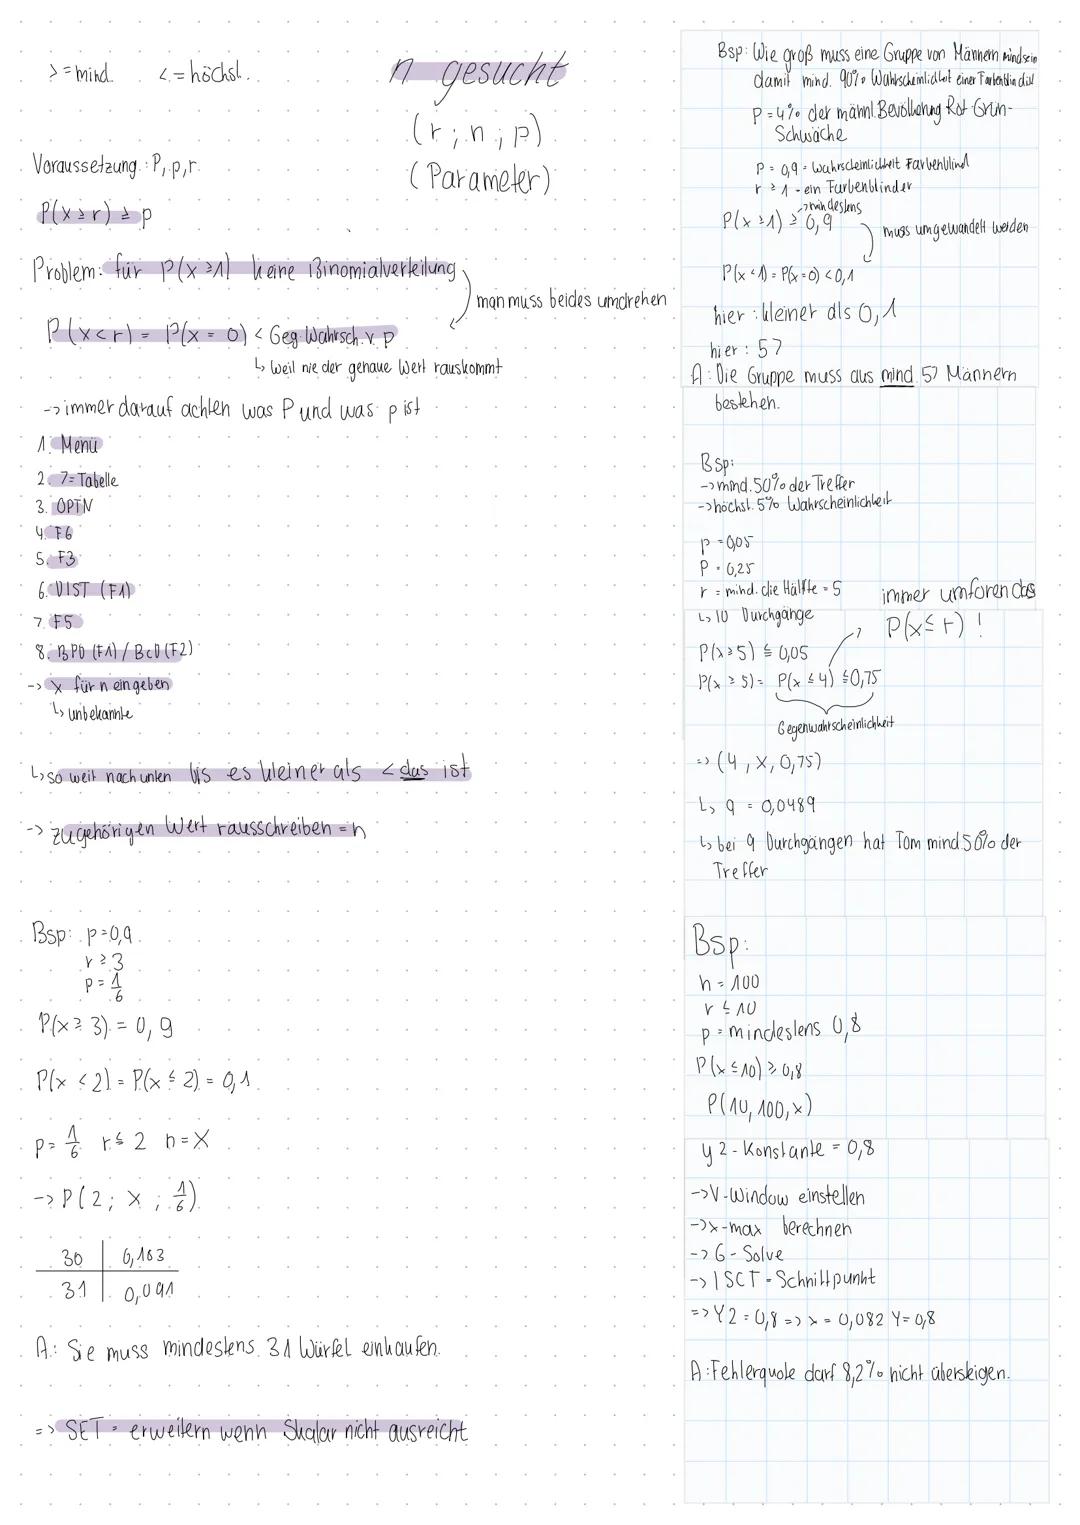 > = mind. < = höchst.
n gesucht
(r ; n ; p)
(Parameter)
Voraussetzung: P, p, r
P(x ≥ r) ≥ p
Problem: für P(x ≥ 1) keine Binomialverteilung
man muss beides umdrehen
P(x < r) = P(x = 0) < Geg. Wahrsch. v. p
↳ weil nie der genaue Wert rauskommt
-> immer darauf achten was P und was p ist
1. Menü
2. 7 = Tabelle
3. OPTN
4. F6
5. F3
6. DIST (F1)
7. F5
8. BPD (F1) / BCD (F2)
-> x für n eingeben
↳ unbekannte
↳ so weit nach unten bis es kleiner als < das ist
-> zugehörigen Wert rausschreiben = n
Bsp: p = 0,9
r ≥ 3
p = 1/6
P(x ≥ 3) = 0,9
P(x < 2) = P(x ≤ 2) = 0,1
p = 1/6 r ≤ 2 n = X
-> P(2 ; x ; 1/6)
30 | 0,103
31 | 0,091
A: Sie muss mindestens 31 Würfel einkaufen.
=> SET = erweitern wenn Skalar nicht ausreicht
Bsp: Wie groß muss eine Gruppe von Männern mind sein
damit mind. 90% Wahrscheinlichkeit einer Farbenblind ist
P = 4% der männl. Bevölkerung Rot-Grün-
Schwäche
P = 0,9 = Wahrscheinlichkeit Farbenblind
r ≥ 1 - ein Farbenblinder
-> mindestens
P(x ≥ 1) ≥ 0,9
muss umgewandelt werden
P(x < 1) = P(x = 0) < 0,1
hier : kleiner als 0,1
hier : 57
A: Die Gruppe muss aus mind. 57 Männern
bestehen.
Bsp:
-> mind. 50% der Treffer
-> höchst. 5% Wahrscheinlichkeit
p = 0,05
P = 0,25
r = mind. die Hälfte = 5
↳ 10 Durchgänge
immer umforen das
P(x ≤ r) !
P(x ≥ 5) ≤ 0,05
P(x ≥ 5) = P(x ≤ 4) ≤ 0,75
Gegenwahrscheinlichkeit
=> (4, x, 0,75)
↳ 9 = 0,0489
↳ bei 9 Durchgängen hat Tom mind 50% der
Treffer
Bsp:
n = 100
r ≤ 10
p = mindestens 0,8
P(x ≤ 10) ≥ 0,8
P(10, 100, x)
y2 - Konstante = 0,8
-> V-Window einstellen
-> x-max berechnen
-> G-Solve
-> ISCT = Schnittpunkt
=> Y2 = 0,8 => x = 0,082 Y = 0,8
A: Fehlerquote darf 8,2% nicht übersteigen.